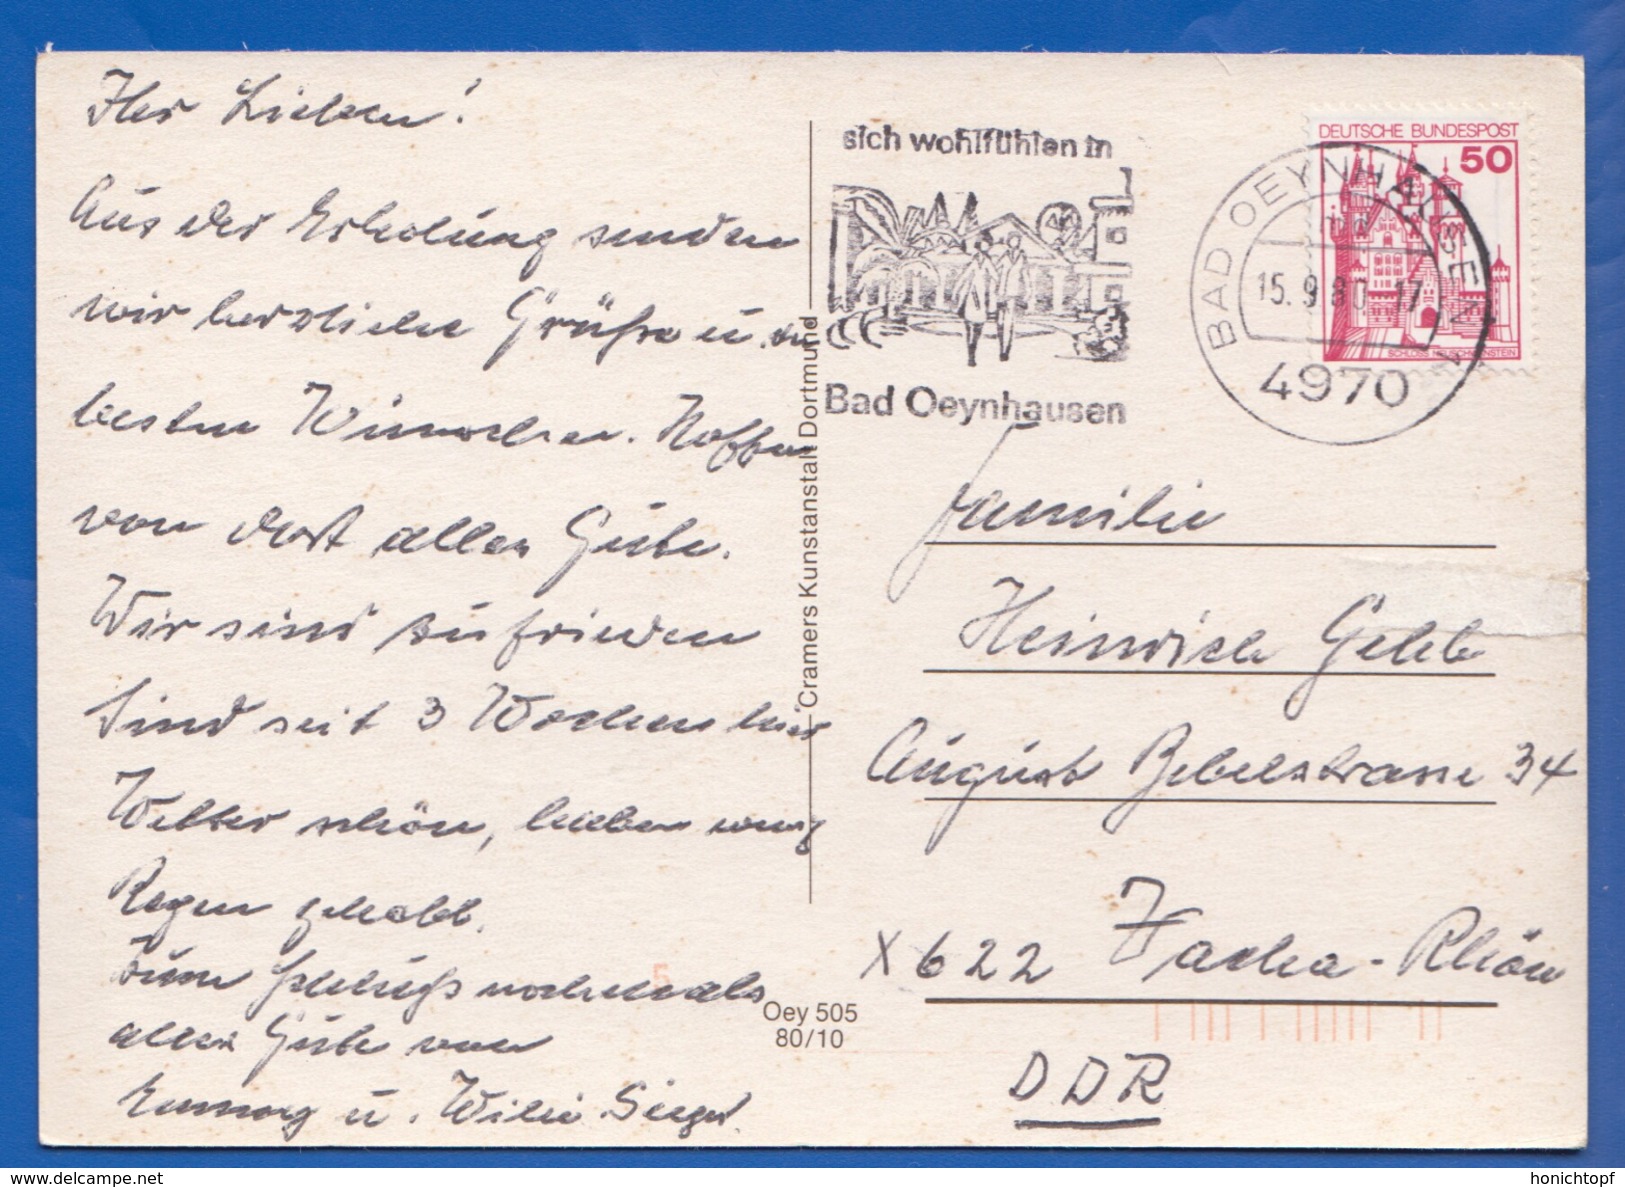 Ihr Lieben!
Aus der Erholung senden
wir herzliche Grüße u. die
besten Wünsche. Hoffen
von dort alles Gute.
Wir sind zufrieden
Sind seit 3 Wochen hier
Wetter schön, haben wenig
Regen gehabt.
Zum Schluß nochmals
alles Gute von
u. Willi Siegel
Cramers Kunstanstalt Dortmund
Oey 505
80/10
5
sich wohlfühlen in
Bad Oeynhausen
BAD OEYNHAUSEN 1
15.9.80.-17
4970
DEUTSCHE BUNDESPOST
50
SCHLOSS NEUSCHWANSTEIN
Familie
Heinrich
August Bebelstrasse 34
X 622 Vacha-Rhön
DDR
https://www.delcampe.net
honichtopf